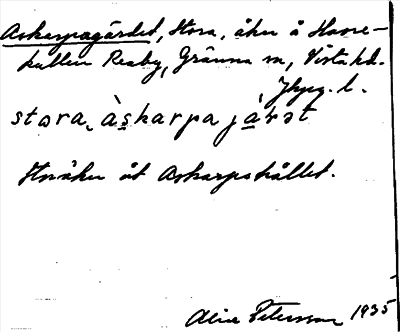 Askarpagärdet, Stora, åker å Havre-
kullen Reaby, Gränna sn, Vista hd.
Jkpg. l.
stora, àskarpa já̱rət
Hör åker åt Askarpshållet.
Alice Petersson 1935